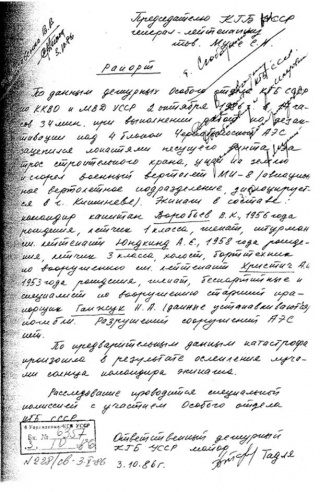 Председателю КГБ УССР
генерал-лейтенанту
тов. Мухе С.Н.
3.10.86
Рапорт
По данным дежурных Особого отдела КГБ СССР
по ККВО и МВД УССР 2 октября 1986 г. в
сов 34 мин. при выполнении работ по дезак-
тивации над 4 блоком Чернобыльской АЭС
зацепился лопастями несущего винта за
трос строительного крана, упал на землю
и сгорел военный вертолет МИ-8 (авиацион.
вертолетное подразделение, дислоцирует-
ся в г. Кишиневе). Экипаж в составе:
командир капитан Воробьев В.К., 1956 года
рождения, летчик 1 класса, женат, штурман
ст. лейтенант Юнгкинд А.Е., 1958 года рожде-
ния, летчик 3 класса, холост, борттехник
по вооружению ст. лейтенант Христич
1953 года рождения, женат, беспартийные и
специалист по вооружению старший пра-
порщик Ганжук Н.А. (данные устанавливаются),
погибли. Разрушений сооружений АЭС
нет.
По предварительным данным катастрофа
произошла в результате ослепления луча-
ми солнца командира экипажа.
Расследование проводится специальной
комиссией с участием Особого отдела
КГБ СССР.
КГБ УССР
Ответственный дежурный
КГБ УССР майор
3.10.86г.